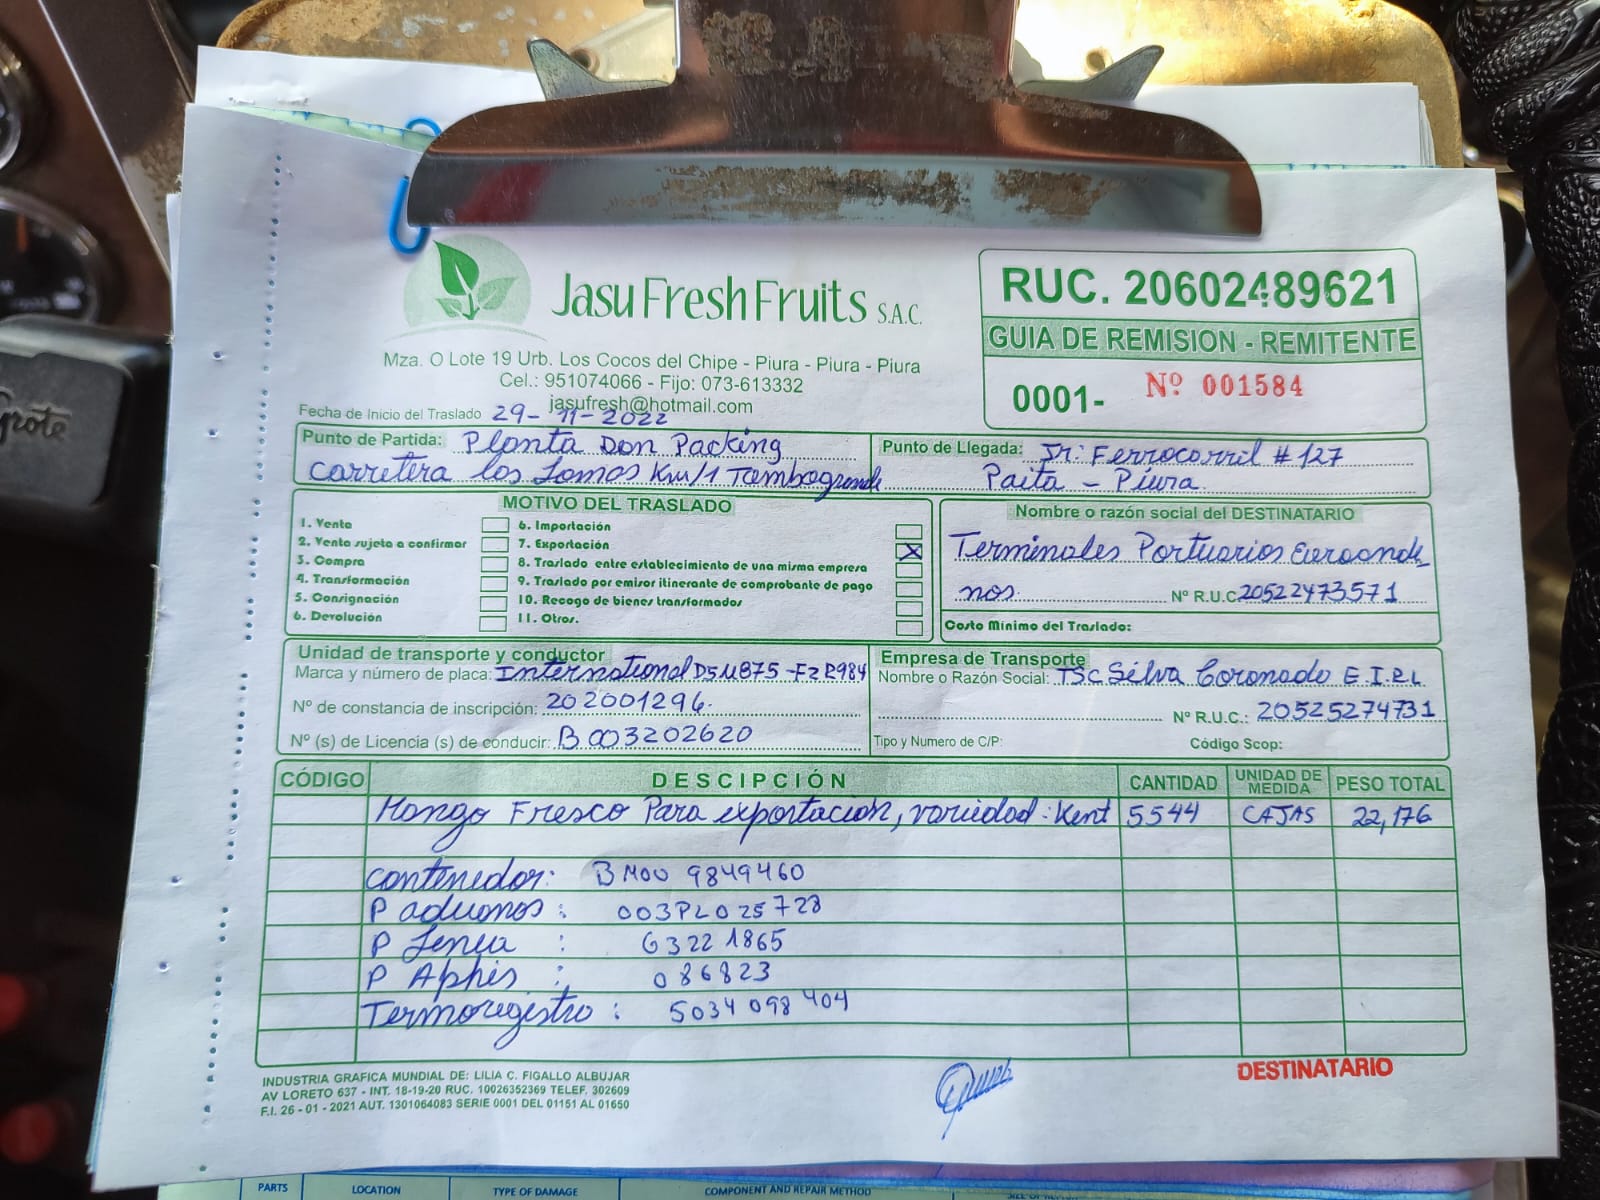 Grote
Jasu Fresh Fruits S.A.C.
Mza. O Lote 19 Urb. Los Cocos del Chipe - Piura - Piura - Piura
Cel.: 951074066 - Fijo: 073-613332
jasufresh@hotmail.com
RUC. 20602489621
GUIA DE REMISION - REMITENTE
0001- Nº 001584
Fecha de Inicio del Traslado 29-11-2022
Punto de Partida: Planta Don Packing
Carretera los Lomas Km/1 Tambogrande
Punto de Llegada: Jr: Ferrocarril # 127
Paita - Piura
MOTIVO DEL TRASLADO
1. Venta
2. Venta sujeta a confirmar
3. Compra
4. Transformación
5. Consignación
6. Devolución
6. Importación
7. Exportación X
8. Traslado entre establecimiento de una misma empresa
9. Traslado por emisor itinerante de comprobante de pago
10. Recogo de bienes transformados
11. Otros.
Nombre o razón social del DESTINATARIO
Terminales Portuarios Euroandi
nos Nº R.U.C 20522473571
Costo Minimo del Traslado:
Unidad de transporte y conductor
Marca y número de placa: International D5U875 - F2R984
Nº de constancia de inscripción: 202001296.
Nº (s) de Licencia (s) de conducir: B 003202620
Empresa de Transporte
Nombre o Razón Social: TSC Silva Coronado E.I.RL
Nº R.U.C.: 20525274731
Tipo y Numero de C/P: Código Scop:
CÓDIGO DESCIPCIÓN CANTIDAD UNIDAD DE MEDIDA PESO TOTAL
Mango Fresco Para exportación, variedad: Kent 5544 CAJAS 22,176
Contenedor: BMOU 9849460
P aduanas : 003PL025728
P Linea : G3221865
P Aphis : 086823
Termoregistro : 5034098404
INDUSTRIA GRAFICA MUNDIAL DE: LILIA C. FIGALLO ALBUJAR
AV LORETO 637 - INT. 18-19-20 RUC. 10026352369 TELEF. 302609
F.I. 26 - 01 - 2021 AUT. 1301064083 SERIE 0001 DEL 01151 AL 01650
DESTINATARIO
PARTS LOCATION TYPE OF DAMAGE COMPONENT AND REPAIR METHOD